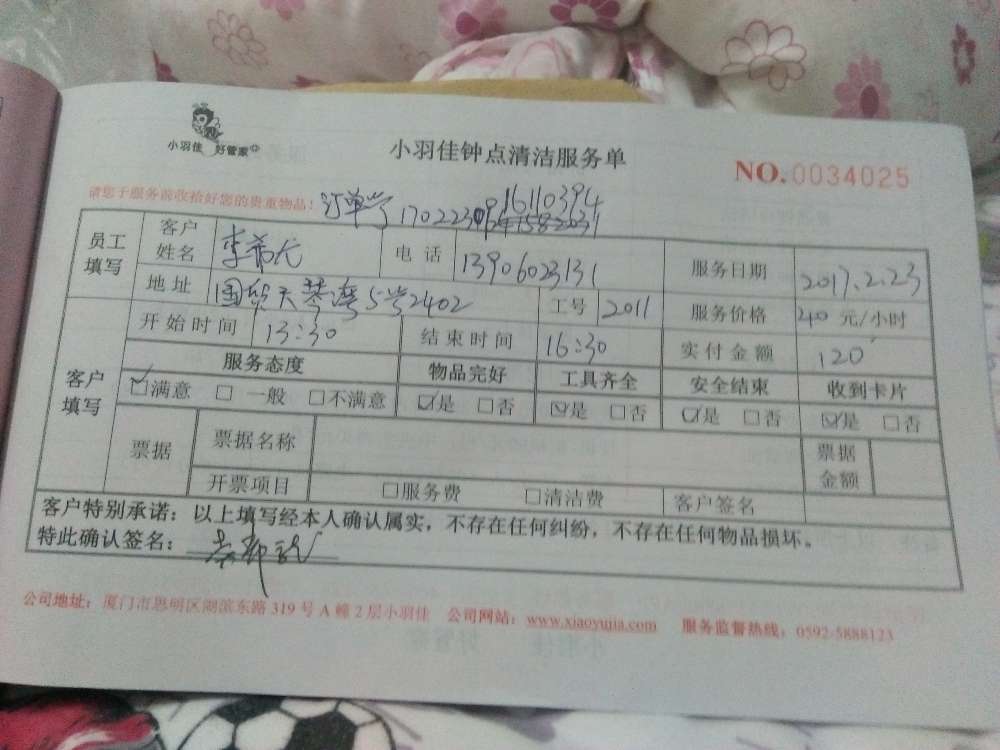 小羽佳 好管家
小羽佳钟点清洁服务单
NO.0034025
请您于服务前收拾好您的贵重物品！
订单号 16110394
员工填写 客户姓名 电话 服务日期 2017.2.23
地址 5号2402 工号 2011 服务价格 40 元/小时
开始时间 13:30 结束时间 16:30 实付金额 120
客户填写 服务态度 物品完好 工具齐全 安全结束 收到卡片
☑满意 □一般 □不满意 ☑是 □否 ☑是 □否 ☑是 □否 ☑是 □否
票据 票据名称 票据金额
开票项目 □服务费 □清洁费 客户签名
客户特别承诺：以上填写经本人确认属实，不存在任何纠纷，不存在任何物品损坏。
特此确认签名：
公司地址：厦门市思明区湖滨东路 319 号 A 幢 2 层小羽佳 公司网站：www.xiaoyujia.com 服务监督热线：0592-5888123